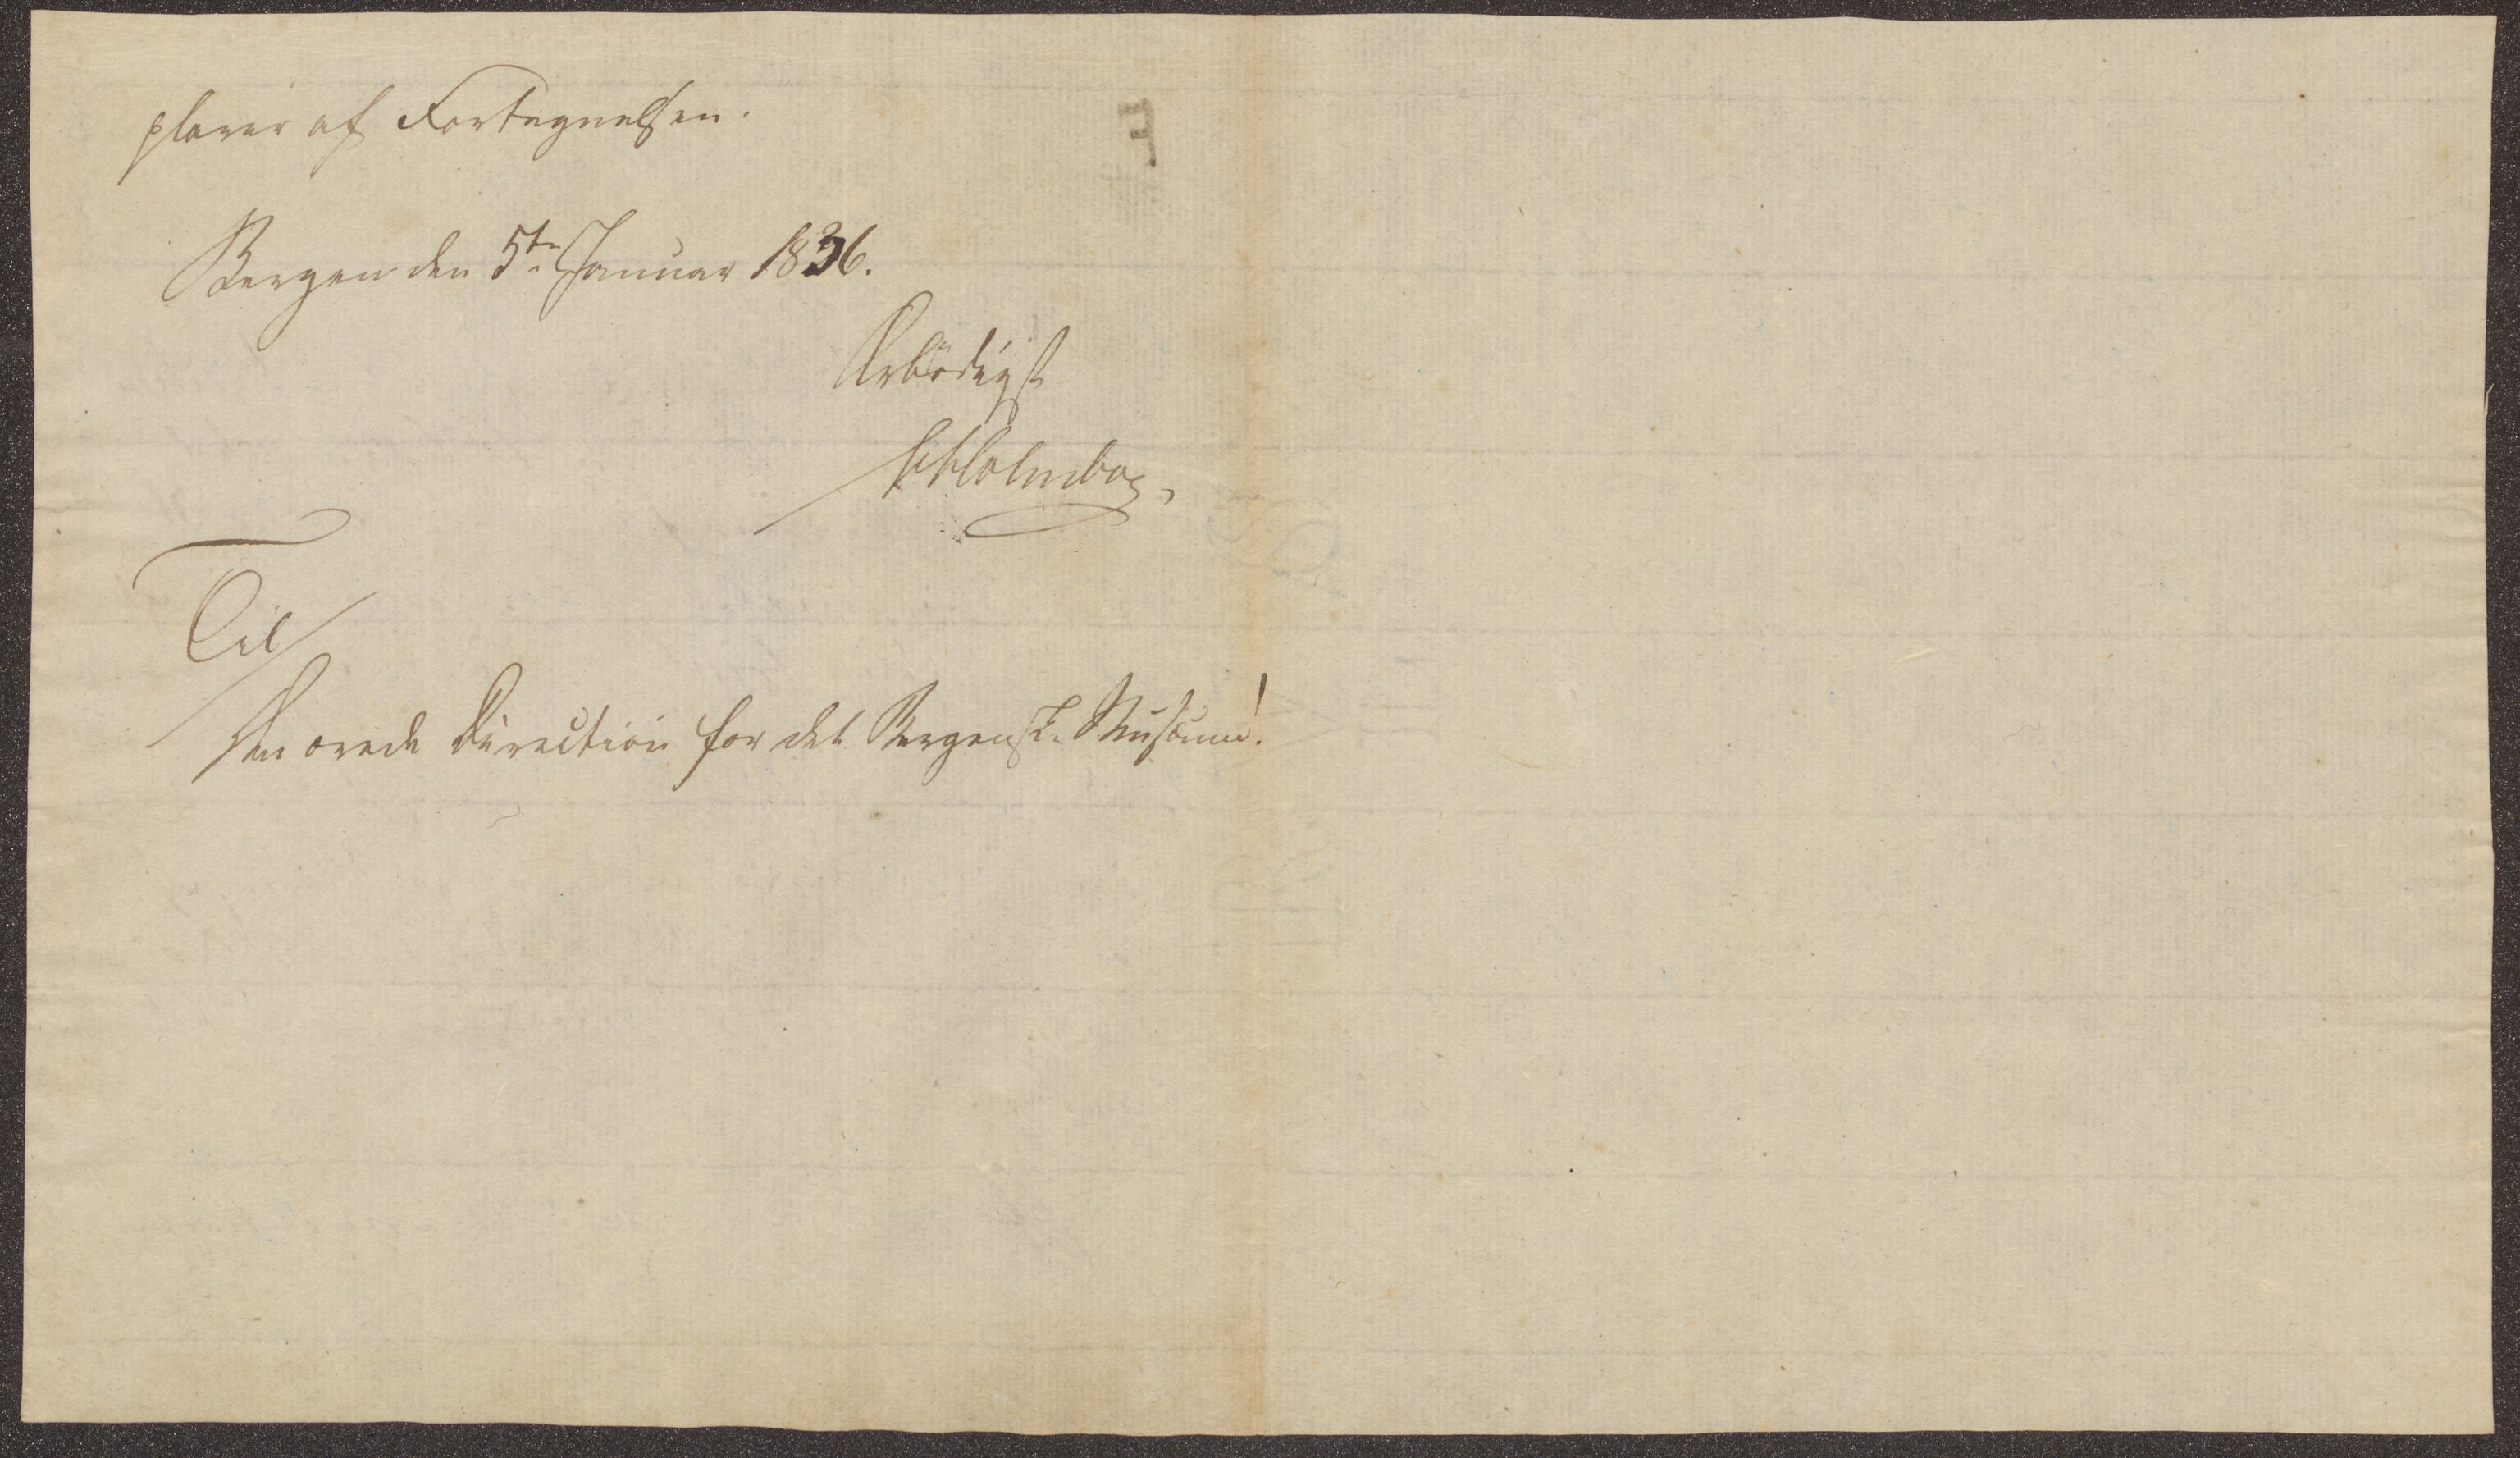 plarer af Fortegnelsen.
Bergen den 5te Januar 1836.
Ærbödigst
Holmboe,
Til
Den ærede Direction for det Bergenske Musæum!